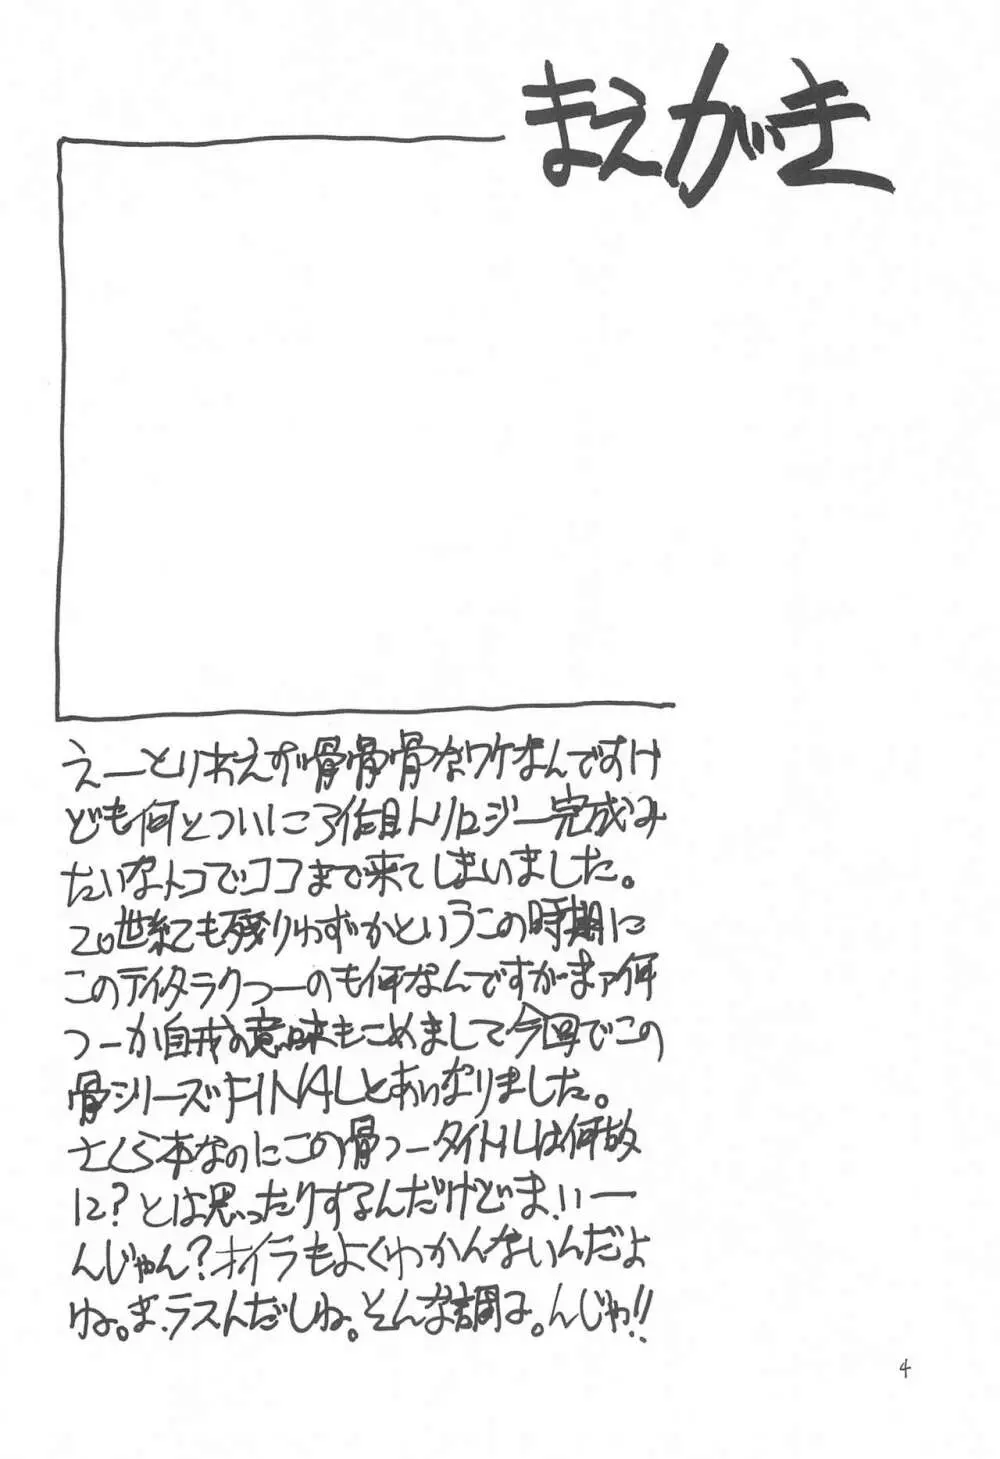 まえがき
えーとりあえず骨骨骨なワケなんですけ
ども何とついに3作目トリロジー完成み
たいなトコでココまで来てしまいました。
20世紀ても残りわずかというこの時期に
このテイタラクつーのも何なんですがまァ何
つーか自戒の意味もこめまして今回でこの
骨シリーズFINALとあいなりました。
さくら本なのにこの骨つータイトルは何故
に?とは思ったりするんだけどま、いー
んじゃん?オイラもよくわかんないんだよ
ね。ま、ラストだしね。そんな調子。んじゃ!!
4